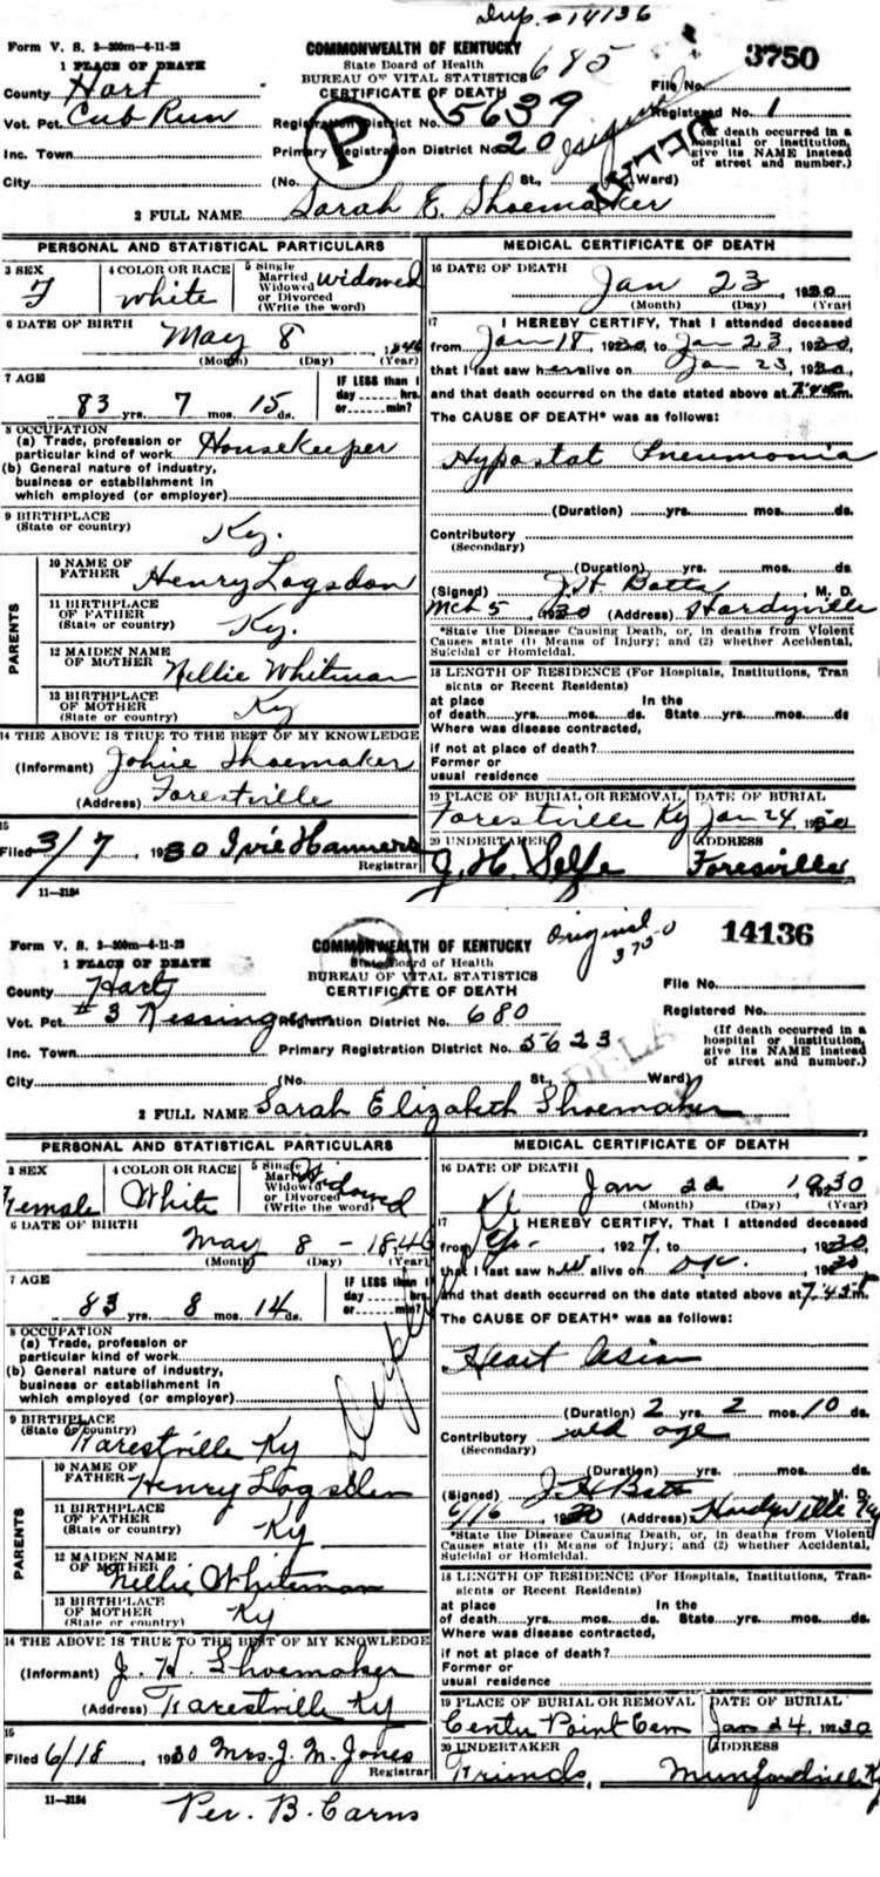 Dup. = 14136
Form V. S. 2-300m-4-11-28
COMMONWEALTH OF KENTUCKY
State Board of Health
BUREAU OF VITAL STATISTICS 685
CERTIFICATE OF DEATH
3750
1 PLACE OF DEATH
County Hart
File No.
Vot. Pct. Cub Run
Registration District No. 5639
Registered No. 1
P
Inc. Town
Primary Registration District No. 20
(If death occurred in a hospital or institution, give its NAME instead of street and number.)
City (No. St., Ward)
2 FULL NAME Sarah E. Shoemaker
PERSONAL AND STATISTICAL PARTICULARS
3 SEX F
4 COLOR OR RACE white
5 Single Married Widowed or Divorced (Write the word) widowed
6 DATE OF BIRTH May 8, 1846
(Month) (Day) (Year)
7 AGE 83 yrs. 7 mos. 15 ds.
IF LESS than 1 day hrs. or min?
8 OCCUPATION
(a) Trade, profession or particular kind of work Housekeeper
(b) General nature of industry, business or establishment in which employed (or employer)
9 BIRTHPLACE (State or country) Ky.
PARENTS
10 NAME OF FATHER Henry Logsdon
11 BIRTHPLACE OF FATHER (State or country) Ky.
12 MAIDEN NAME OF MOTHER Nellie Whitman
13 BIRTHPLACE OF MOTHER (State or country) Ky
14 THE ABOVE IS TRUE TO THE BEST OF MY KNOWLEDGE
(Informant) Johnie Shoemaker
(Address) Forestville
15
Filed 3/7, 1930 Ivie Hanners
Registrar
11-3184
MEDICAL CERTIFICATE OF DEATH
16 DATE OF DEATH
Jan 23, 1930
(Month) (Day) (Year)
17 I HEREBY CERTIFY, That I attended deceased
from Jan 18, 1930, to Jan 23, 1930,
that I last saw her alive on Jan 23, 1930,
and that death occurred on the date stated above at m.
The CAUSE OF DEATH* was as follows:
Hypostat Pneumonia
(Duration) yrs. mos. ds.
Contributory (Secondary)
(Duration) yrs. mos. ds.
(Signed) J. H. Batts, M. D.
Mch 5, 1930 (Address) Hardyville
*State the Disease Causing Death, or, in deaths from Violent Causes state (1) Means of Injury; and (2) whether Accidental, Suicidal or Homicidal.
18 LENGTH OF RESIDENCE (For Hospitals, Institutions, Transients or Recent Residents)
at place of death yrs. mos. ds. In the State yrs. mos. ds
Where was disease contracted,
if not at place of death?
Former or usual residence
19 PLACE OF BURIAL OR REMOVAL Forestville Ky
DATE OF BURIAL Jan 24, 1930
20 UNDERTAKER J. H. Selfe
ADDRESS Foresville
Form V. S. 2-300m-4-11-28
COMMONWEALTH OF KENTUCKY
State Board of Health
BUREAU OF VITAL STATISTICS
CERTIFICATE OF DEATH
Original 3750
14136
1 PLACE OF DEATH
County Hart
File No.
Vot. Pct. #3
Registration District No. 680
Registered No.
Inc. Town
Primary Registration District No. 5623
(If death occurred in a hospital or institution, give its NAME instead of street and number.)
City (No. St., Ward)
2 FULL NAME Sarah Elizabeth Shoemaker
PERSONAL AND STATISTICAL PARTICULARS
3 SEX Female
4 COLOR OR RACE White
5 Single Married Widowed or Divorced (Write the word) Widowed
6 DATE OF BIRTH May 8 - 1846
(Month) (Day) (Year)
7 AGE 83 yrs. 8 mos. 14 ds.
IF LESS than 1 day hrs. or min?
8 OCCUPATION
(a) Trade, profession or particular kind of work
(b) General nature of industry, business or establishment in which employed (or employer)
9 BIRTHPLACE (State or country) Farestville Ky
PARENTS
10 NAME OF FATHER Henry Logsdon
11 BIRTHPLACE OF FATHER (State or country) Ky
12 MAIDEN NAME OF MOTHER Nellie Whiteman
13 BIRTHPLACE OF MOTHER (State or country) Ky
14 THE ABOVE IS TRUE TO THE BEST OF MY KNOWLEDGE
(Informant) J. H. Shoemaker
(Address) Farestville Ky
15
Filed 6/18, 1930 Mrs. J. M. Jones
Registrar
11-3184
Per. B. Carns
MEDICAL CERTIFICATE OF DEATH
16 DATE OF DEATH
Jan 22, 1930
(Month) (Day) (Year)
17 I HEREBY CERTIFY, That I attended deceased
from, 1927, to, 1930,
that I last saw h alive on, 1930
and that death occurred on the date stated above at 7:45 m.
The CAUSE OF DEATH* was as follows:
Heart
(Duration) 2 yrs. 2 mos. 10 ds.
Contributory (Secondary) old age
(Duration) yrs. mos. ds.
(Signed) J H Batts M. D.
6/16, 1930 (Address) Hardyville Ky
*State the Disease Causing Death, or, in deaths from Violent Causes state (1) Means of Injury; and (2) whether Accidental, Suicidal or Homicidal.
18 LENGTH OF RESIDENCE (For Hospitals, Institutions, Transients or Recent Residents)
at place of death yrs. mos. ds. In the State yrs. mos. ds.
Where was disease contracted,
if not at place of death?
Former or usual residence
19 PLACE OF BURIAL OR REMOVAL Center Point Cem
DATE OF BURIAL Jan 24, 1930
20 UNDERTAKER Friends,
ADDRESS Munfordville Ky